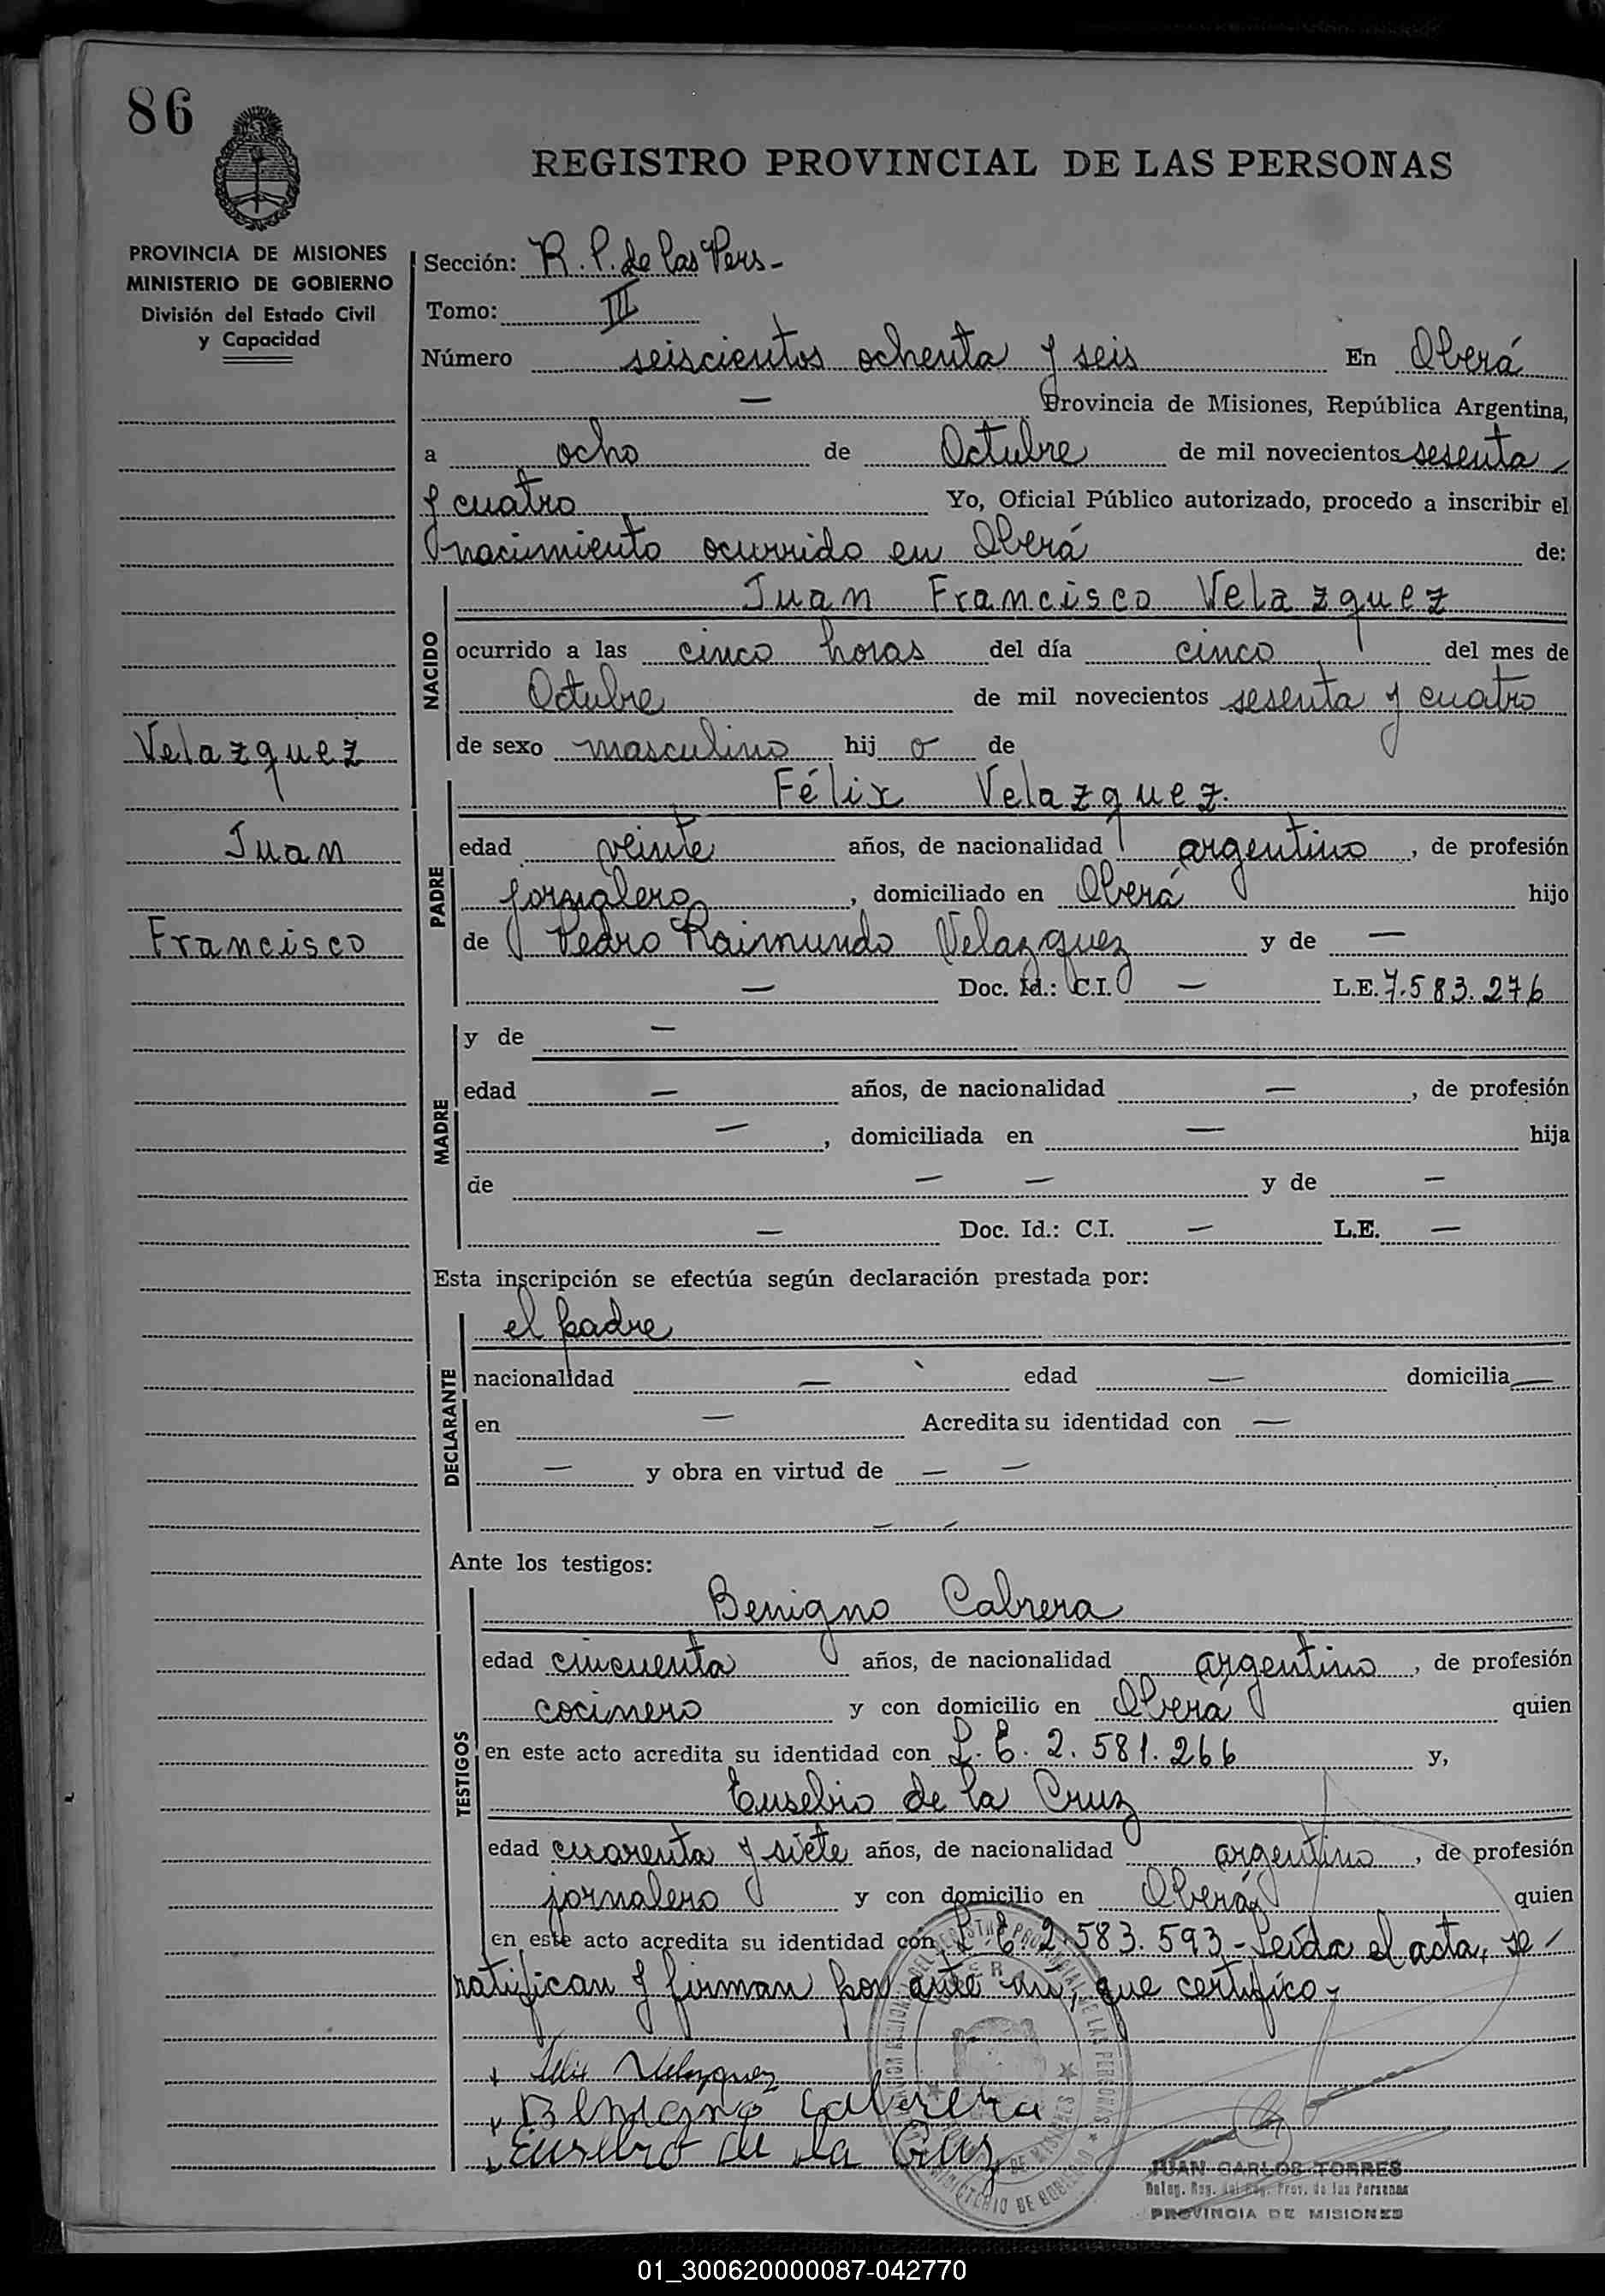 86
REGISTRO PROVINCIAL DE LAS PERSONAS
PROVINCIA DE MISIONES
MINISTERIO DE GOBIERNO
División del Estado Civil
y Capacidad
Sección: R. P. de las Pers-
Tomo: III
Número seiscientos ochenta y seis En Oberá
— Provincia de Misiones, República Argentina,
a ocho de Octubre de mil novecientos sesenta
y cuatro Yo, Oficial Público autorizado, procedo a inscribir el
nacimiento ocurrido en Oberá de:
NACIDO
Juan Francisco Velazquez
ocurrido a las cinco horas del día cinco del mes de
Octubre de mil novecientos sesenta y cuatro
de sexo masculino hijo de
Velazquez
Juan
Francisco
PADRE
Félix Velazquez.
edad veinte años, de nacionalidad argentino, de profesión
jornalero, domiciliado en Oberá hijo
de Pedro Raimundo Velazquez y de —
— Doc. Id.: C.I. — L.E. 7.583.276
MADRE
y de —
edad — años, de nacionalidad —, de profesión
—, domiciliada en — hija
de — — y de —
— Doc. Id.: C.I. — L.E. —
Esta inscripción se efectúa según declaración prestada por:
DECLARANTE
el padre
nacionalidad — edad — domicilia —
en — Acredita su identidad con —
— y obra en virtud de — —
— —
Ante los testigos:
TESTIGOS
Benigno Cabrera
edad cincuenta años, de nacionalidad argentino, de profesión
cocinero y con domicilio en Oberá quien
en este acto acredita su identidad con L. E. 2.581.266 y,
Eusebio de la Cruz
edad cuarenta y siete años, de nacionalidad argentino, de profesión
jornalero y con domicilio en Oberá quien
en este acto acredita su identidad con L. E. 2.583.593 - Leída el acta, se
ratifican y firman por ante mí, que certifico-
Felix Velazquez
Benigno Cabrera
Eusebio de la Cruz
JUAN CARLOS TORRES
Deleg. Reg. del Reg. Prov. de las Personas
PROVINCIA DE MISIONES
01_300620000087-042770